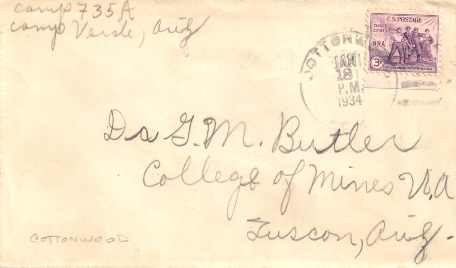 Camp 735A
Camp Verde, Ariz
U.S. POSTAGE
THREE CENTS
NRA
3¢
COTTONWOOD
JAN
18
P.M.
1934
Dr G. M. Butler
College of Mines U.A
Tuscon, Ariz.
COTTONWOOD